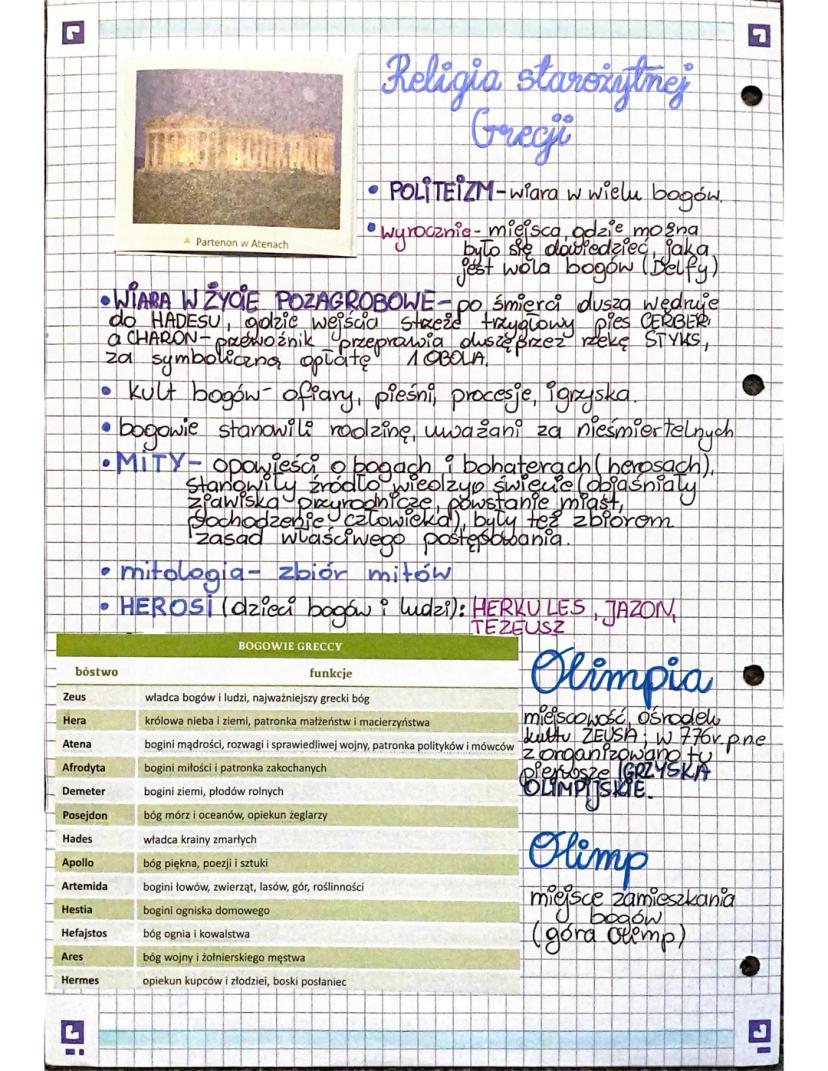 Religia starożytnej
Grecji
▲ Partenon w Atenach
• POLITEIZM - wiara w wielu bogów.
• wyrocznie - miejsca, gdzie można
było się dowiedzieć, jaka
jest wola bogów (Delfy)
• WIARA W ŻYCIE POZAGROBOWE - po śmierci dusza wędruje
do HADESU, gdzie wejścia strzeże trzygłowy pies CERBER,
a CHARON - przewoźnik przeprawia duszę przez rzekę STYKS,
za symboliczną opłatę 1 OBOLA.
• kult bogów - ofiary, pieśni, procesje, igrzyska.
• bogowie stanowili rodzinę, uważani za nieśmiertelnych
• MITY - opowieści o bogach i bohaterach (herosach),
stanowiły źródło wiedzy o świecie (objaśniały
zjawiska przyrodnicze, powstanie miast,
pochodzenie człowieka), były też zbiorem
zasad właściwego postępowania.
• mitologia - zbiór mitów
• HEROSI (dzieci bogów i ludzi): HERKULES, JAZON,
TEZEUSZ
BOGOWIE GRECCY
bóstwo funkcje
Zeus władca bogów i ludzi, najważniejszy grecki bóg
Hera królowa nieba i ziemi, patronka małżeństw i macierzyństwa
Atena bogini mądrości, rozwagi i sprawiedliwej wojny, patronka polityków i mówców
Afrodyta bogini miłości i patronka zakochanych
Demeter bogini ziemi, płodów rolnych
Posejdon bóg mórz i oceanów, opiekun żeglarzy
Hades władca krainy zmarłych
Apollo bóg piękna, poezji i sztuki
Artemida bogini łowów, zwierząt, lasów, gór, roślinności
Hestia bogini ogniska domowego
Hefajstos bóg ognia i kowalstwa
Ares bóg wojny i żołnierskiego męstwa
Hermes opiekun kupców i złodziei, boski posłaniec
Olimpia
miejscowość, ośrodek
kultu ZEUSA; w 776r. p.n.e
zorganizowano tu
pierwsze IGRZYSKA
OLIMPIJSKIE.
Olimp
miejsce zamieszkania
bogów
(góra Olimp)